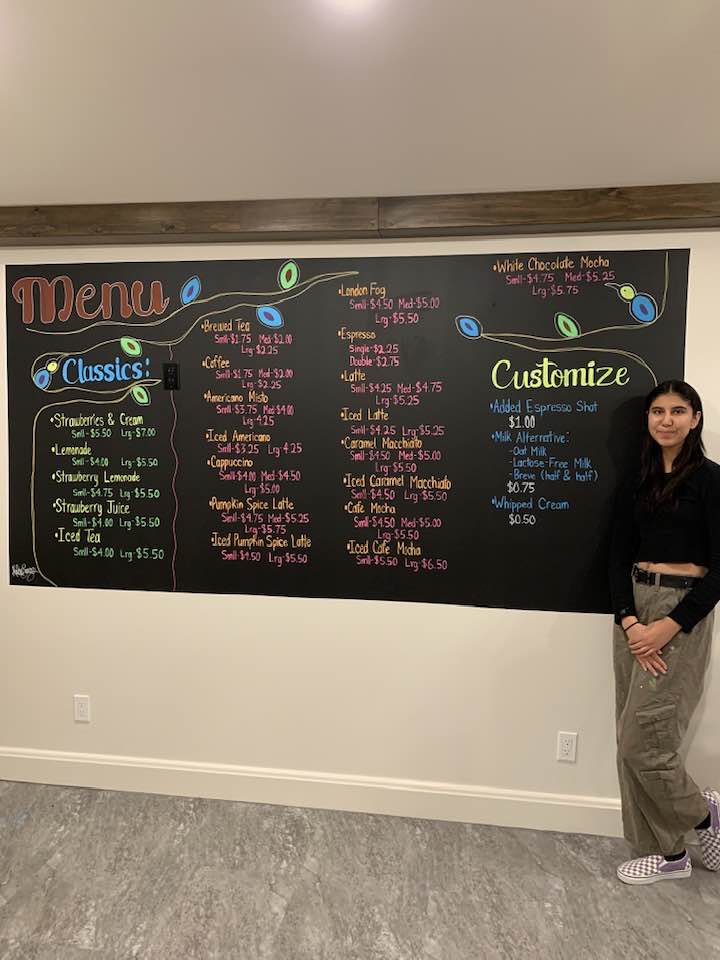 Menu
Classics:
•Strawberries & Cream
Smll-$5.50 Lrg-$7.00
•Lemonade
Smll-$4.00 Lrg-$5.50
•Strawberry Lemonade
Smll-$4.75 Lrg-$5.50
•Strawberry Juice
Smll-$4.00 Lrg-$5.50
•Iced Tea
Smll-$4.00 Lrg-$5.50
•Brewed Tea
Smll-$1.75 Med-$2.00
Lrg-$2.25
•Coffee
Smll-$1.75 Med-$2.00
Lrg-$2.25
•Americano Misto
Smll-$3.75 Med-$4.00
Lrg-4.25
•Iced Americano
Smll-$3.25 Lrg-4.25
•Cappuccino
Smll-$4.00 Med-$4.50
Lrg-$5.00
•Pumpkin Spice Latte
Smll-$4.75 Med-$5.25
Lrg-$5.75
•Iced Pumpkin Spice Latte
Smll-$4.50 Lrg-$5.50
•London Fog
Smll-$4.50 Med-$5.00
Lrg-$5.50
•Espresso
Single-$2.25
Double-$2.75
•Latte
Smll-$4.25 Med-$4.75
Lrg-$5.25
•Iced Latte
Smll-$4.25 Lrg-$5.25
•Caramel Macchiato
Smll-$4.50 Med-$5.00
Lrg-$5.50
•Iced Caramel Macchiato
Smll-$4.50 Lrg-$5.50
•Cafe Mocha
Smll-$4.50 Med-$5.00
Lrg-$5.50
•Iced Cafe Mocha
Smll-$5.50 Lrg-$6.50
•White Chocolate Mocha
Smll-$4.75 Med-$5.25
Lrg-$5.75
Customize
•Added Espresso Shot
$1.00
•Milk Alternative:
-Oat Milk
-Lactose-Free Milk
-Breve (half & half)
$0.75
•Whipped Cream
$0.50